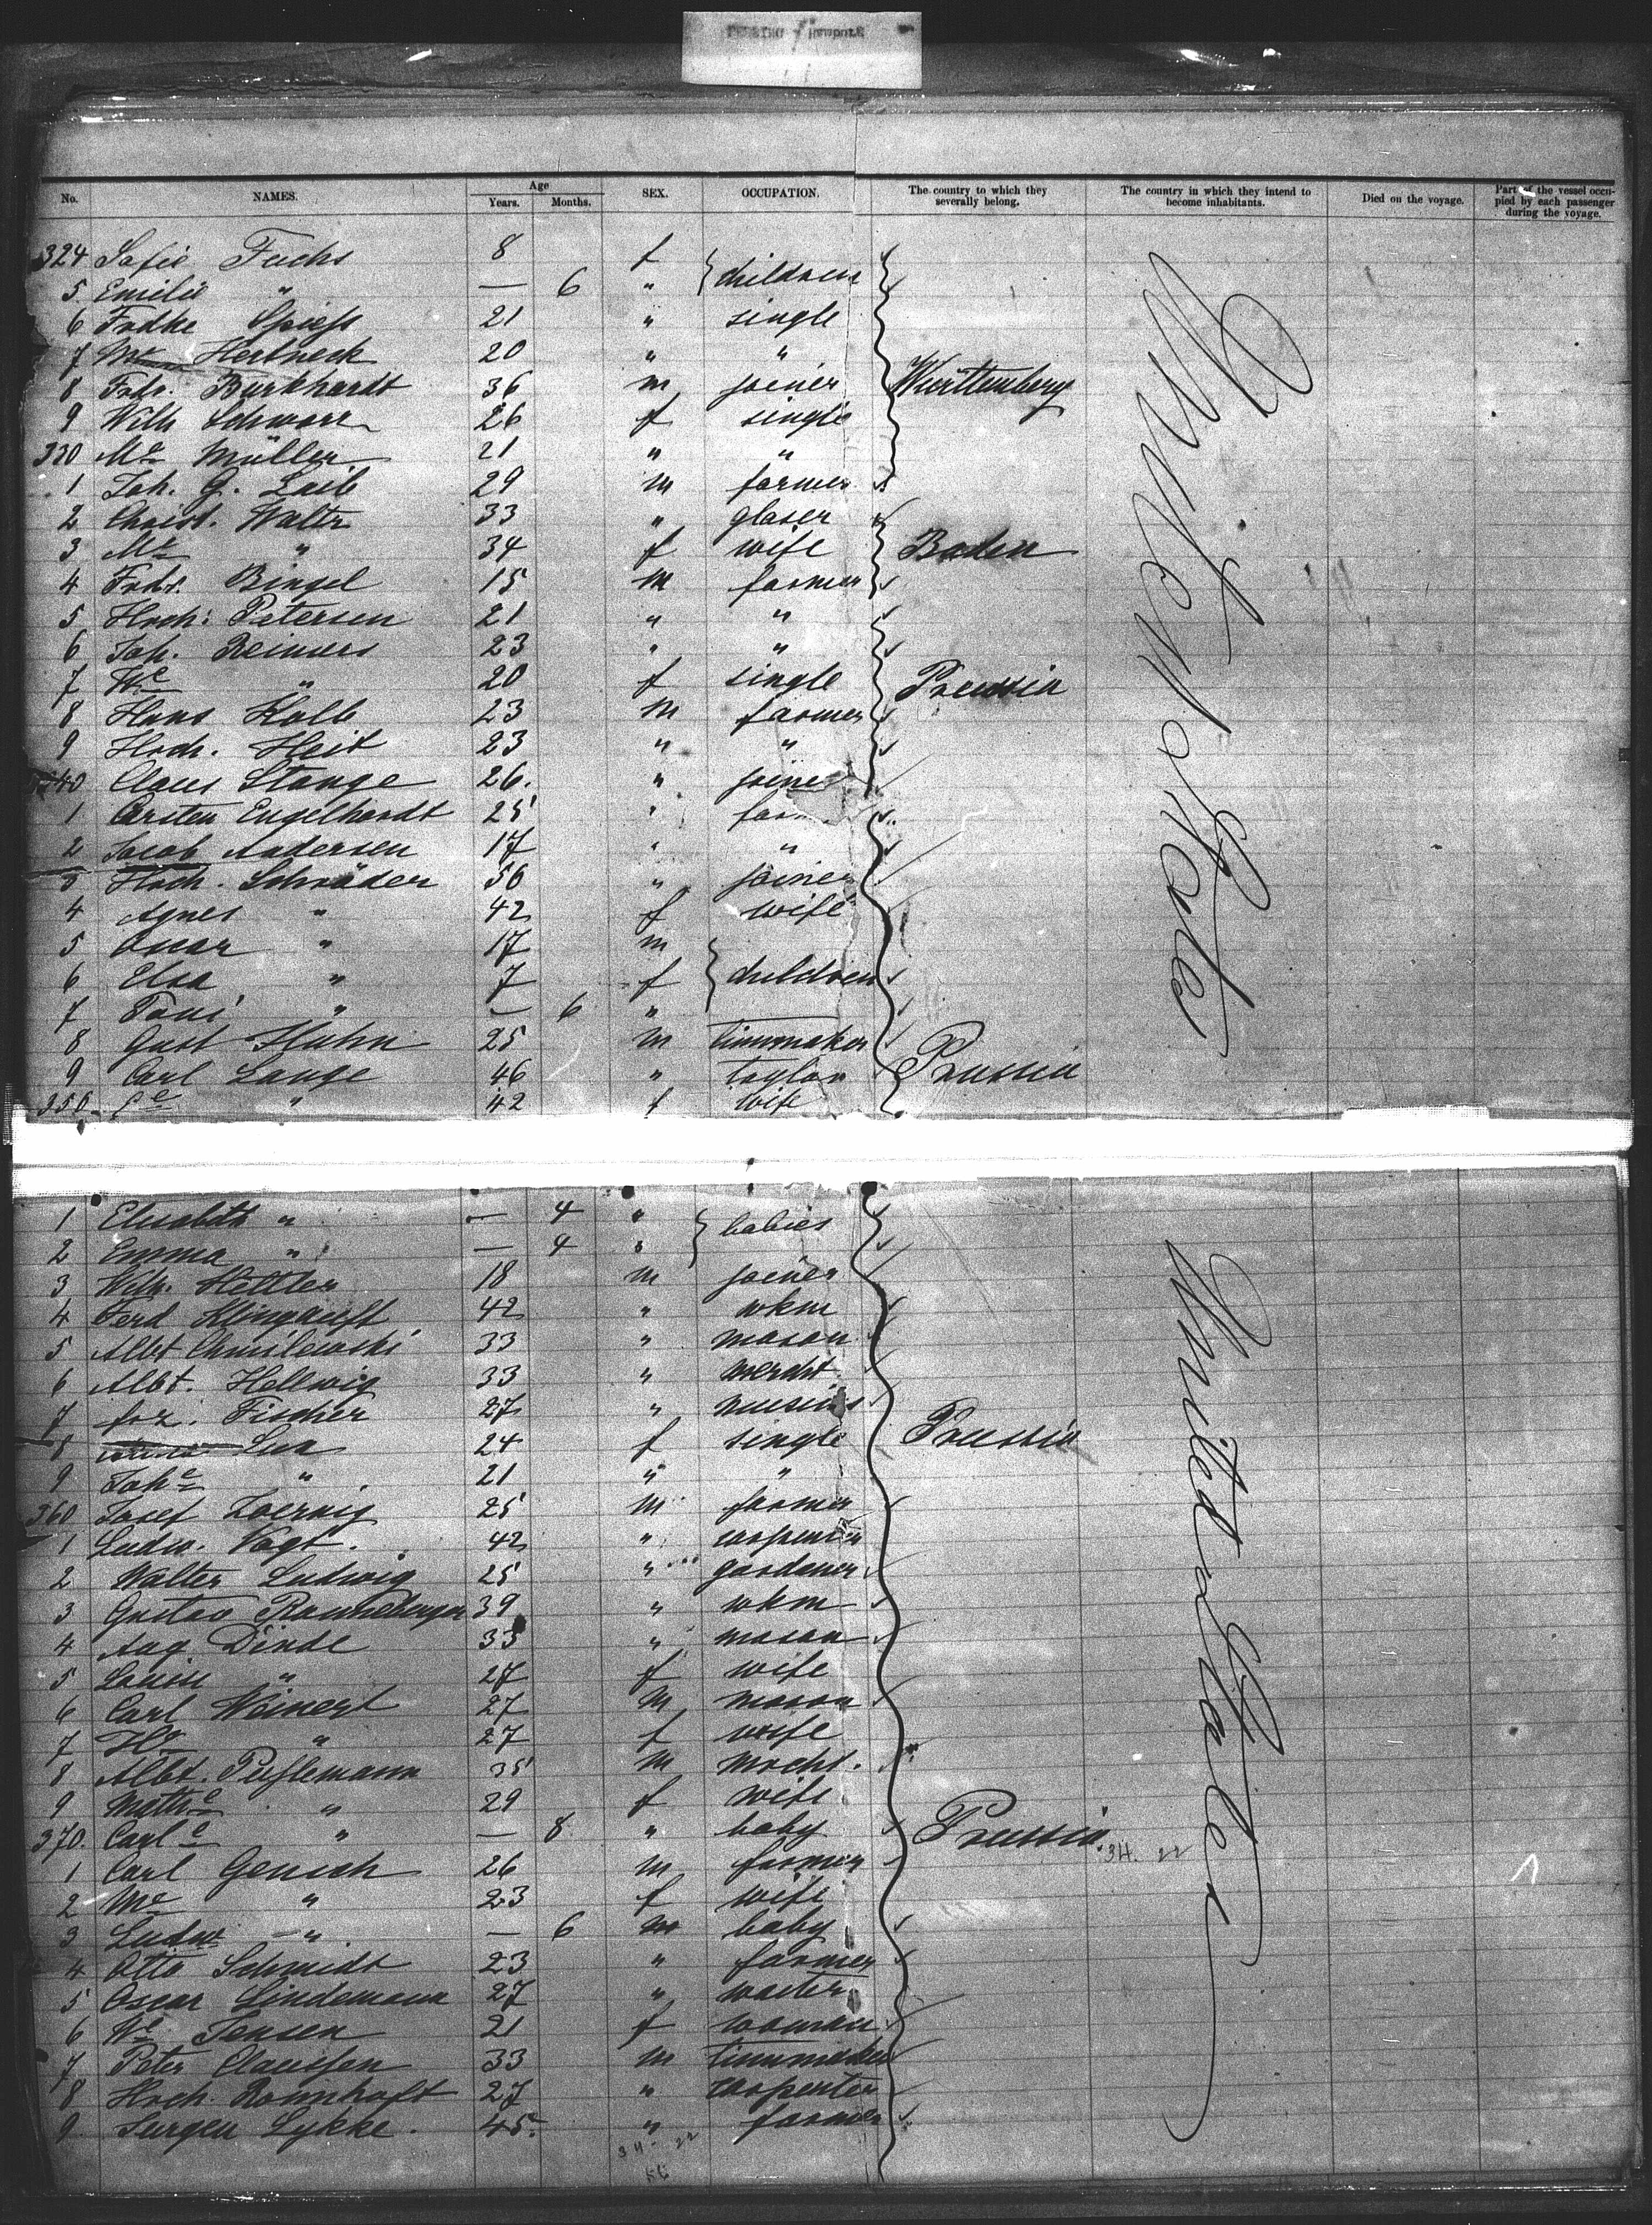 No. NAMES. Age Years. Months. SEX. OCCUPATION. The country to which they severally belong. The country in which they intend to become inhabitants. Died on the voyage. Part of the vessel occupied by each passenger during the voyage.
324 Sofie Fuchs 8 f children
5 Emilie " — 6 "
6 Frdke Spieß 21 " single
7 Me Herbneck 20 " "
8 Frdr. Burkhardt 36 m joiner Württemberg
9 Wilh Schwarz 26 f single
330 Me Müller 21 " "
1 Joh. G. Laib 29 m farmer
2 Christ. Walter 33 " glaser
3 Me " 34 f wife Baden
4 Frdr. Bingel 15 m farmer
5 Hrch: Petersen 21 " "
6 Joh. Reimers 23 " "
7 We " 20 f single Preussia
8 Hans Kolb 23 m farmer
9 Hrch. Heit 23 " "
340 Claus Stange 26. " joiner
1 Carsten Engelhardt 25 " far
2 Jacob Andersen 17 " "
3 Hrch. Schröder 56 " joiner
4 Agnes " 42 f wife
5 Oscar " 17 m children
6 Elsa " 7 f
7 Toni " — 6 "
8 Gust Huhn 25 m tinnmaker
9 Carl Lange 46 " taylor Prussia
350 " 42 f wife
United States
1 Elisabeth " — 4 " babies
2 Emma " — 4 "
3 Wilh. Hettler 18 m joiner
4 Ferd Klingauft 42 " wkm
5 Albt Chmilewski 33 " mason
6 Albt. Hellwig 33 " mercht
7 Frz. Fischer 27 "
8 Lux 24 f single Prussia
9 Johe " 21 " "
360 Josef Zoernig 25 m farmer
1 Ludw. Vogt. 42 " carpenter
2 Walter Ludwig 25 " gardener
3 Gustav Ranneberger 39 " wkm
4 Aug Dinde 33 " mason
5 Louise " 27 f wife
6 Carl Weinert 27 m mason
7 He " 27 f wife
8 Albt. Pußlemann 35 m mecht.
9 Mathe " 29 f wife
370. Carle " — 8 " baby Prussia 34. 22
1 Carl Gensch 26 m farmer
2 Me " 23 f wife
3 Ludw " — 6 m baby
4 Otto Schmidt 23 " farmer
5 Oscar Lindemann 27 " waiter
6 We Jensen 21 f woman
7 Peter Claussen 33 m tinnmaker
8 Hrch. Rönnhoft 27 " carpenter
9 Jurgen Lykke. 45 " farmer
34- 22
United States